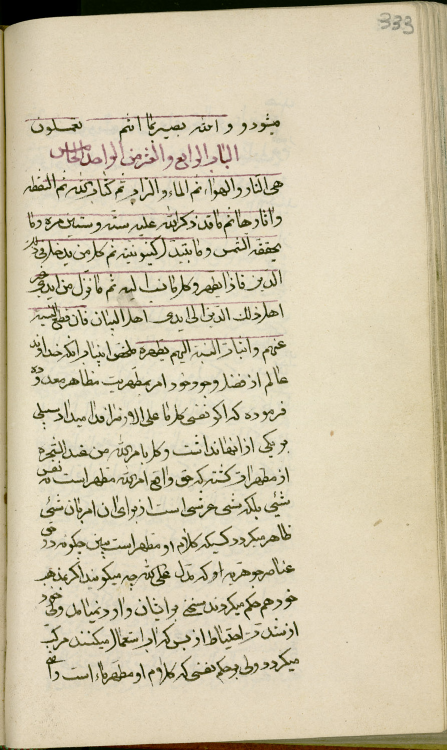 333
میشود و و الله بصیر بما انتم تعملون
الباب الرابع والعشر من الواحد الخامس
هی النار والهواء ثم الماء والتراب ثم کتاب الله ثم النقطه
و اثارها ثم ما قد ذکر الله علیه ستة وستین مره وما
یجففه الشمس وما یتبدل کینونیته ثم کل من یدخل فی
الدین فاذا یطهر و کل ما نسب الیه ثم ما نزل من ایدی غیر
اهل ذلک الدین الی ایدی اهل البیان فان قطع النسبة
عنهم و اثبات النسبة الیهم یطهره ملخص این باب آنکه خداوند
عالم از فضل و جود خود امر بمطهریت مظاهر معدوده
فرموده که اگر نفسی کل ما علی الارض را فدا میداد سبیلی
بر یکی از اینها نداشت و کل بامر الله من عند الشجره
از مطهرات گشته که حق واقع امر الله مطهر است نه نفس
شیئی بلکه شیئی عرشی است از برای آن امر بآن شیئی
ظاهر میگردد کسیکه کلام او مطهر است ببین چگونه در حق
عناصر جوهریه او که تدل علی الله چه میگویند اگر بمذهب
خود هم حکم میکردند سخنی بر ایشان وارد نمیامد ولی خود
از شدت احتیاط از بس که آب استعمال میکنند مرکب
میگردد ولی بر حکم نفسی که کلام او مطهر ماء است واقع